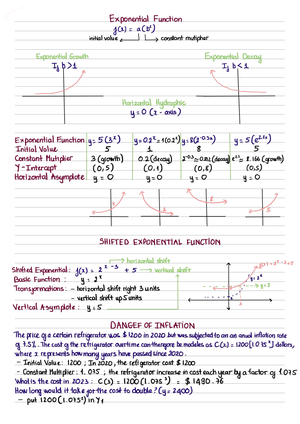 Exponential Function
f(x) = a(bˣ)
initial value constant multiplier
Exponential Growth Exponential Decay
If b>1 If b<1
y=0 (x - axis)
Exponential Function y=5(3ˣ)
Initial Value 5 1 8 5
Constant Multiplier 3 (growth) 0.2 (decay)
Y-Intercept (0,5) (0,1) (0,8) (0,5)
Horizontal Asymptote y=0 y=0 y=0 y=0
SHIFTED EXPONENTIAL FUNCTION
horizontal shift
Shifted Exponential: f(x) = 2ˣ⁻³ + 5 → vertical shift
Basic Function : y = 2ˣ
Transformations: - horizontal shift right 3 units
- vertical shift up 5 units
Vertical Asymptote : y=5
DANGER OF INFLATION
The price of a certain refrigerator was $1200 in 2020 but was subjected to an annual inflation rate
of 7.5%. The cost of the refrigerator overtime can be modeled as C(x)=1200(1.075ˣ) dollars,
where x represents how many years have passed since 2020.
- Initial Value : 1200 ; In 2020, the refrigerator cost $1200
- Constant Multiplier : 1.075 ; the refrigerator increase in cost each year by a factor of 1.075
What is the cost in 2023 : C(3) = 1200(1.075³) = $1490.76
How long would it take for the cost to double? (y=2400)
- put 1200(1.075ˣ) in Y₁